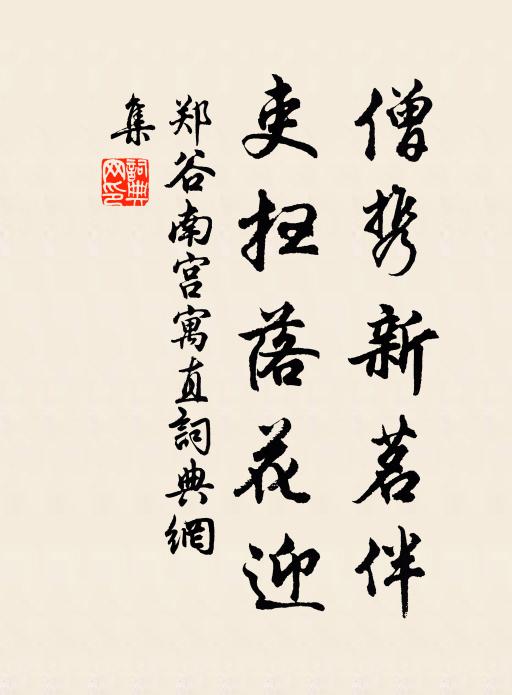 僧携新茗伴
吏扫落花迎
郑谷南宫寓直詞典網
集
詞典
网印